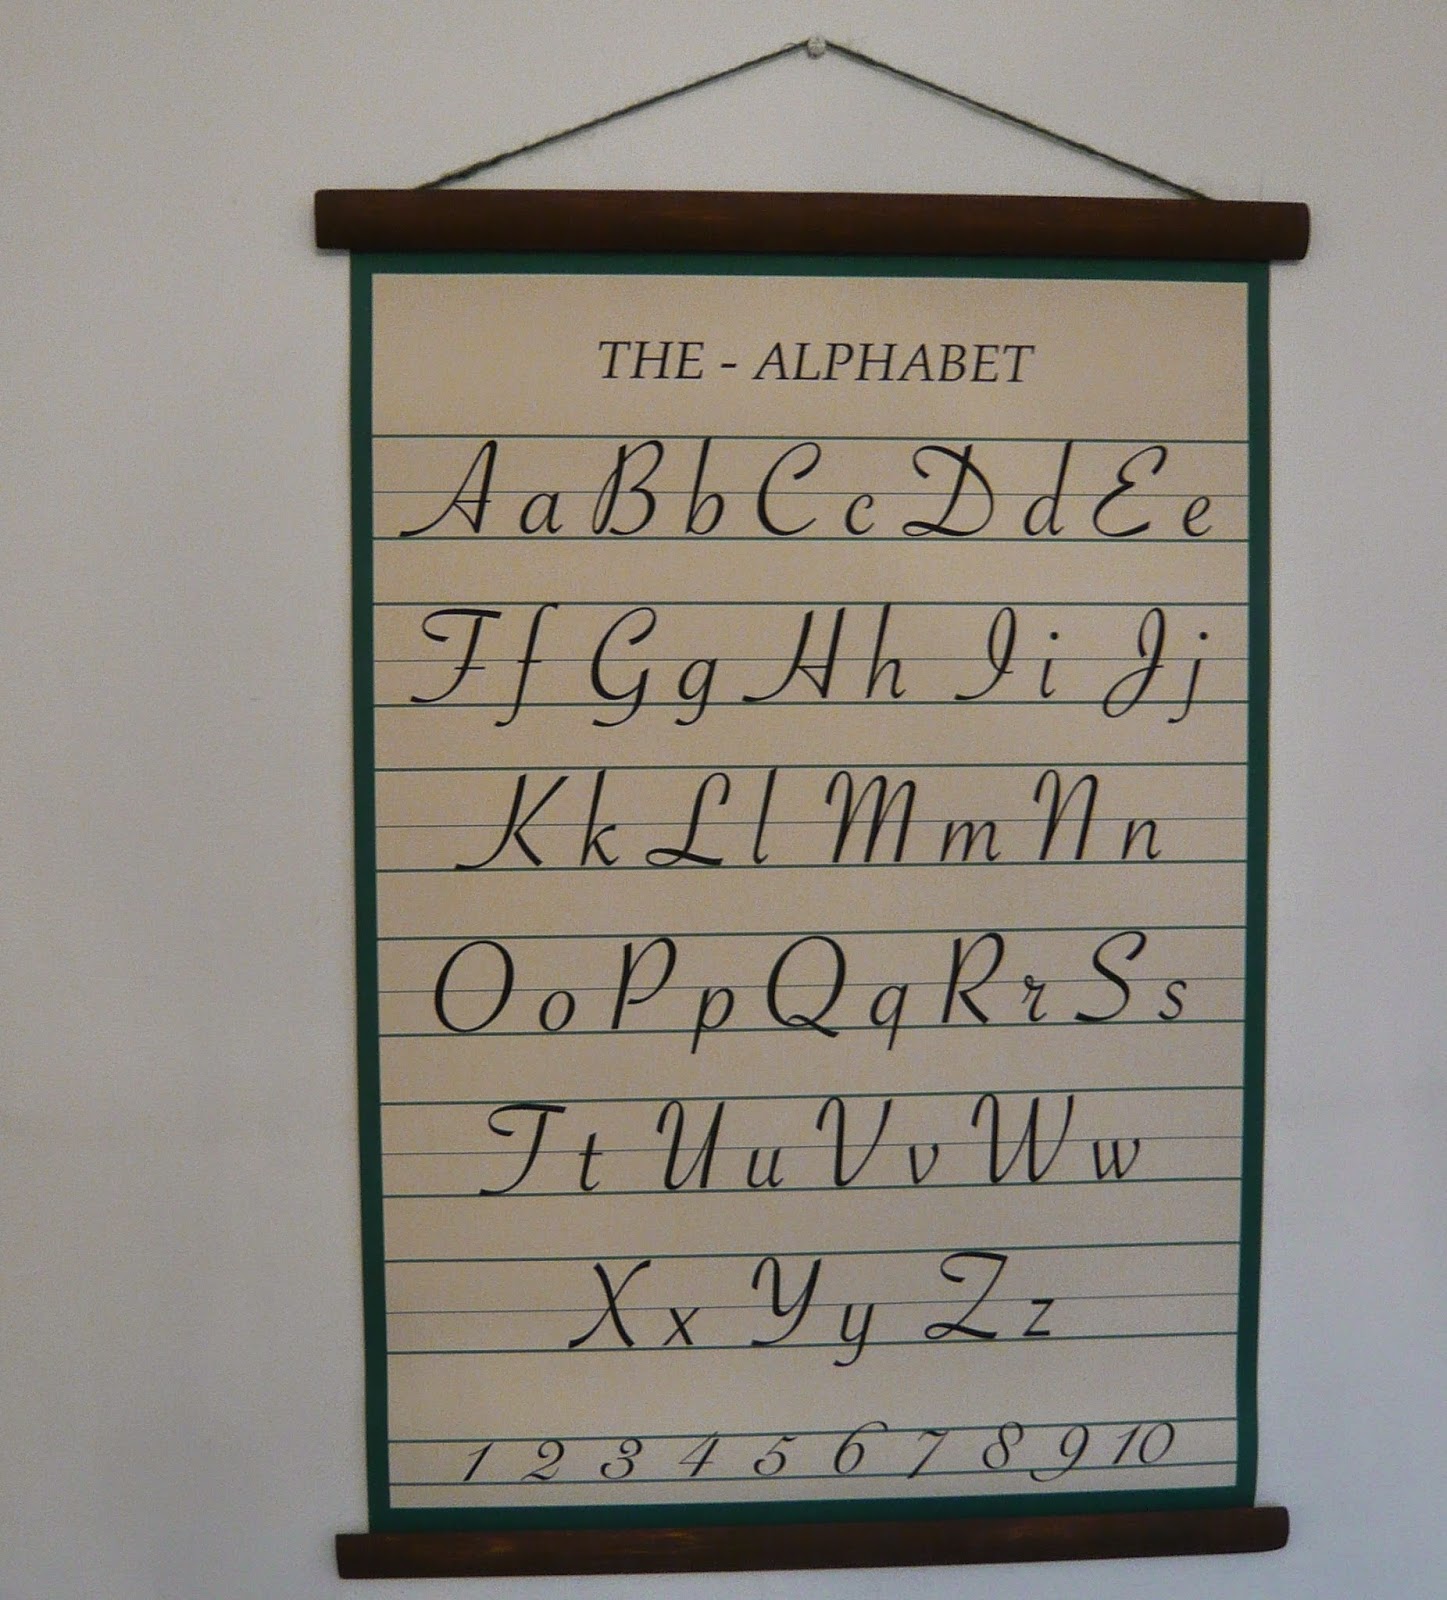 THE - ALPHABET
A a B b C c D d E e
F f G g H h I i J j
K k L l M m N n
O o P p Q q R r S s
T t U u V v W w
X x Y y Z z
1 2 3 4 5 6 7 8 9 10